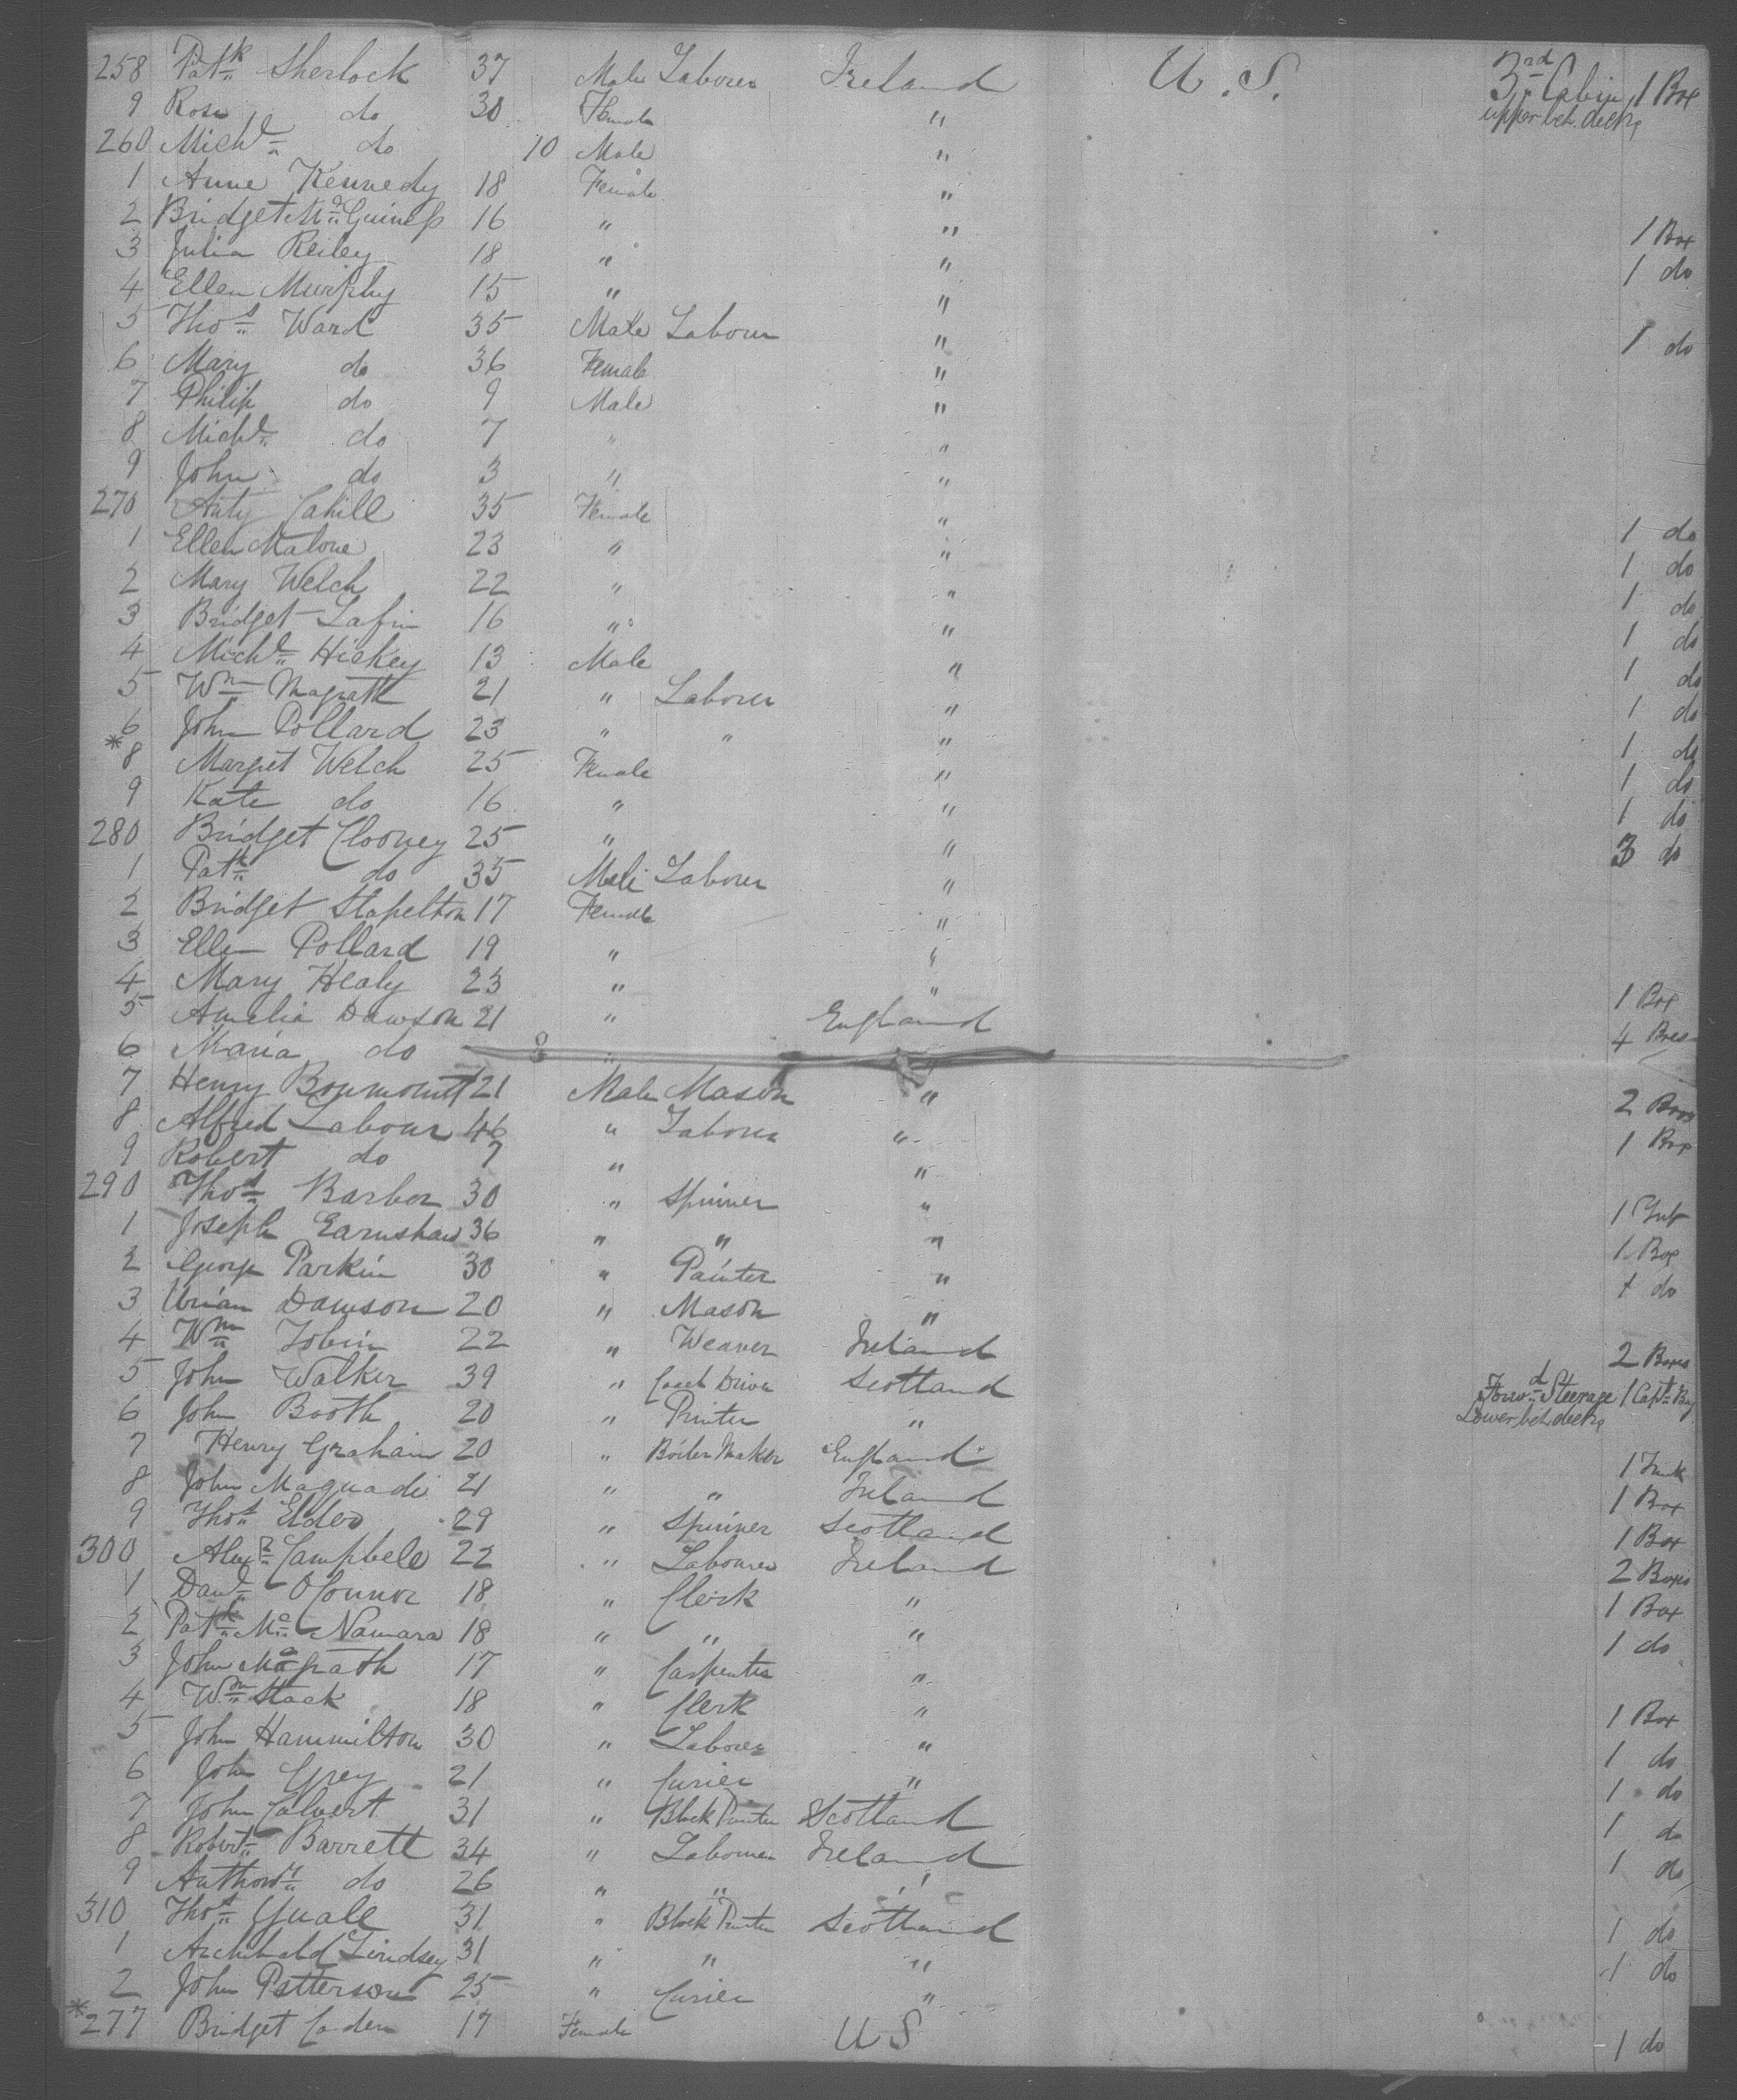 258 Patk Sherlock 37 Male Laborer Ireland U.S. 3rd Cabin 1 Box
9 Rose do 30 Female " upper bet. decks
260 Michl do 10 Male "
1 Anne Kennedy 18 Female "
2 Bridget Mc Guiness 16 " " 1 Box
3 Julia Reiley 18 " " 1 do
4 Ellen Murphy 15 " "
5 Thos Ward 35 Male Labourer " 1 do
6 Mary do 36 Female "
7 Philip do 9 Male "
8 Michl do 7 " "
9 John do 3 " "
270 Anty Cahill 35 Female " 1 do
1 Ellen Malone 23 " " 1 do
2 Mary Welch 22 " " 1 do
3 Bridget Lafin 16 " " 1 do
4 Michl Hickey 13 Male " 1 do
5 Wm Magrath 21 " Laborer " 1 do
6 John Pollard 23 " " " 1 do
* 8 Margret Welch 25 Female " 1 do
9 Kate do 16 " " 1 do
280 Bridget Clooney 25 " " 3 do
1 Patk do 35 Male Laborer "
2 Bridget Stapelton 17 Female "
3 Ellen Pollard 19 " "
4 Mary Healy 23 " " 1 Box
5 Amelia Dawson 21 " England 4 Boxes
6 Maria do 8 "
7 Henry 21 Male Mason " 2 Boxes
8 Alfred Labour 46 " Laborer " 1 Box
9 Robert do 7 " "
290 Thos Barber 30 " Spinner " 1
1 Joseph Earnshaw 36 " " " 1 Box
2 George Parkin 30 " Painter " 1 do
3 Urian Dawson 20 " Mason "
4 Wm Tobin 22 " Weaver Ireland 2 Boxes
5 John Walker 39 " Coach Driver Scotland Forwd Steerage 1 Carpt Bag
6 John Booth 20 " Printer " Lower bet. decks
7 Henry Graham 20 " Boiler Maker England 1 Trunk
8 John 21 " " Ireland 1 Box
9 Thos Elder 29 " Spinner Scotland 1 Box
300 Alexr Campbell 22 " Labourer Ireland 2 Boxes
1 Danl O'Connor 18 " Clerk " 1 Box
2 Patk Mc Namara 18 " " " 1 do
3 John Magrath 17 " Carpenter "
4 Wm Stack 18 " Clerk " 1 Box
5 John Hammilton 30 " Laborer " 1 do
6 John Grey 21 " Curier " 1 do
7 John Calvert 31 " Block Printer Scotland 1 do
8 Robert Barrett 34 " Labourer Ireland 1 do
9 do 26 " " "
310 Thos Quale 31 " Block Printer Scotland 1 do
1 Archibald Lindsey 31 " " " 1 do
2 John Patterson 25 " Curier "
* 277 Bridget 17 Female U S 1 do